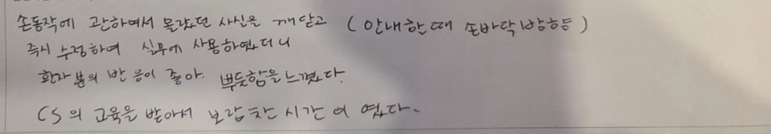 손동작에 관하여서 몰랐던 사실을 깨닫고 (안내할때 손바닥 방향등)
즉시 수정하여 실무에 사용하였더니
환자분의 반응이 좋아 뿌듯함을 느꼈다.
CS의 교육을 받아서 보람찬 시간이였다.